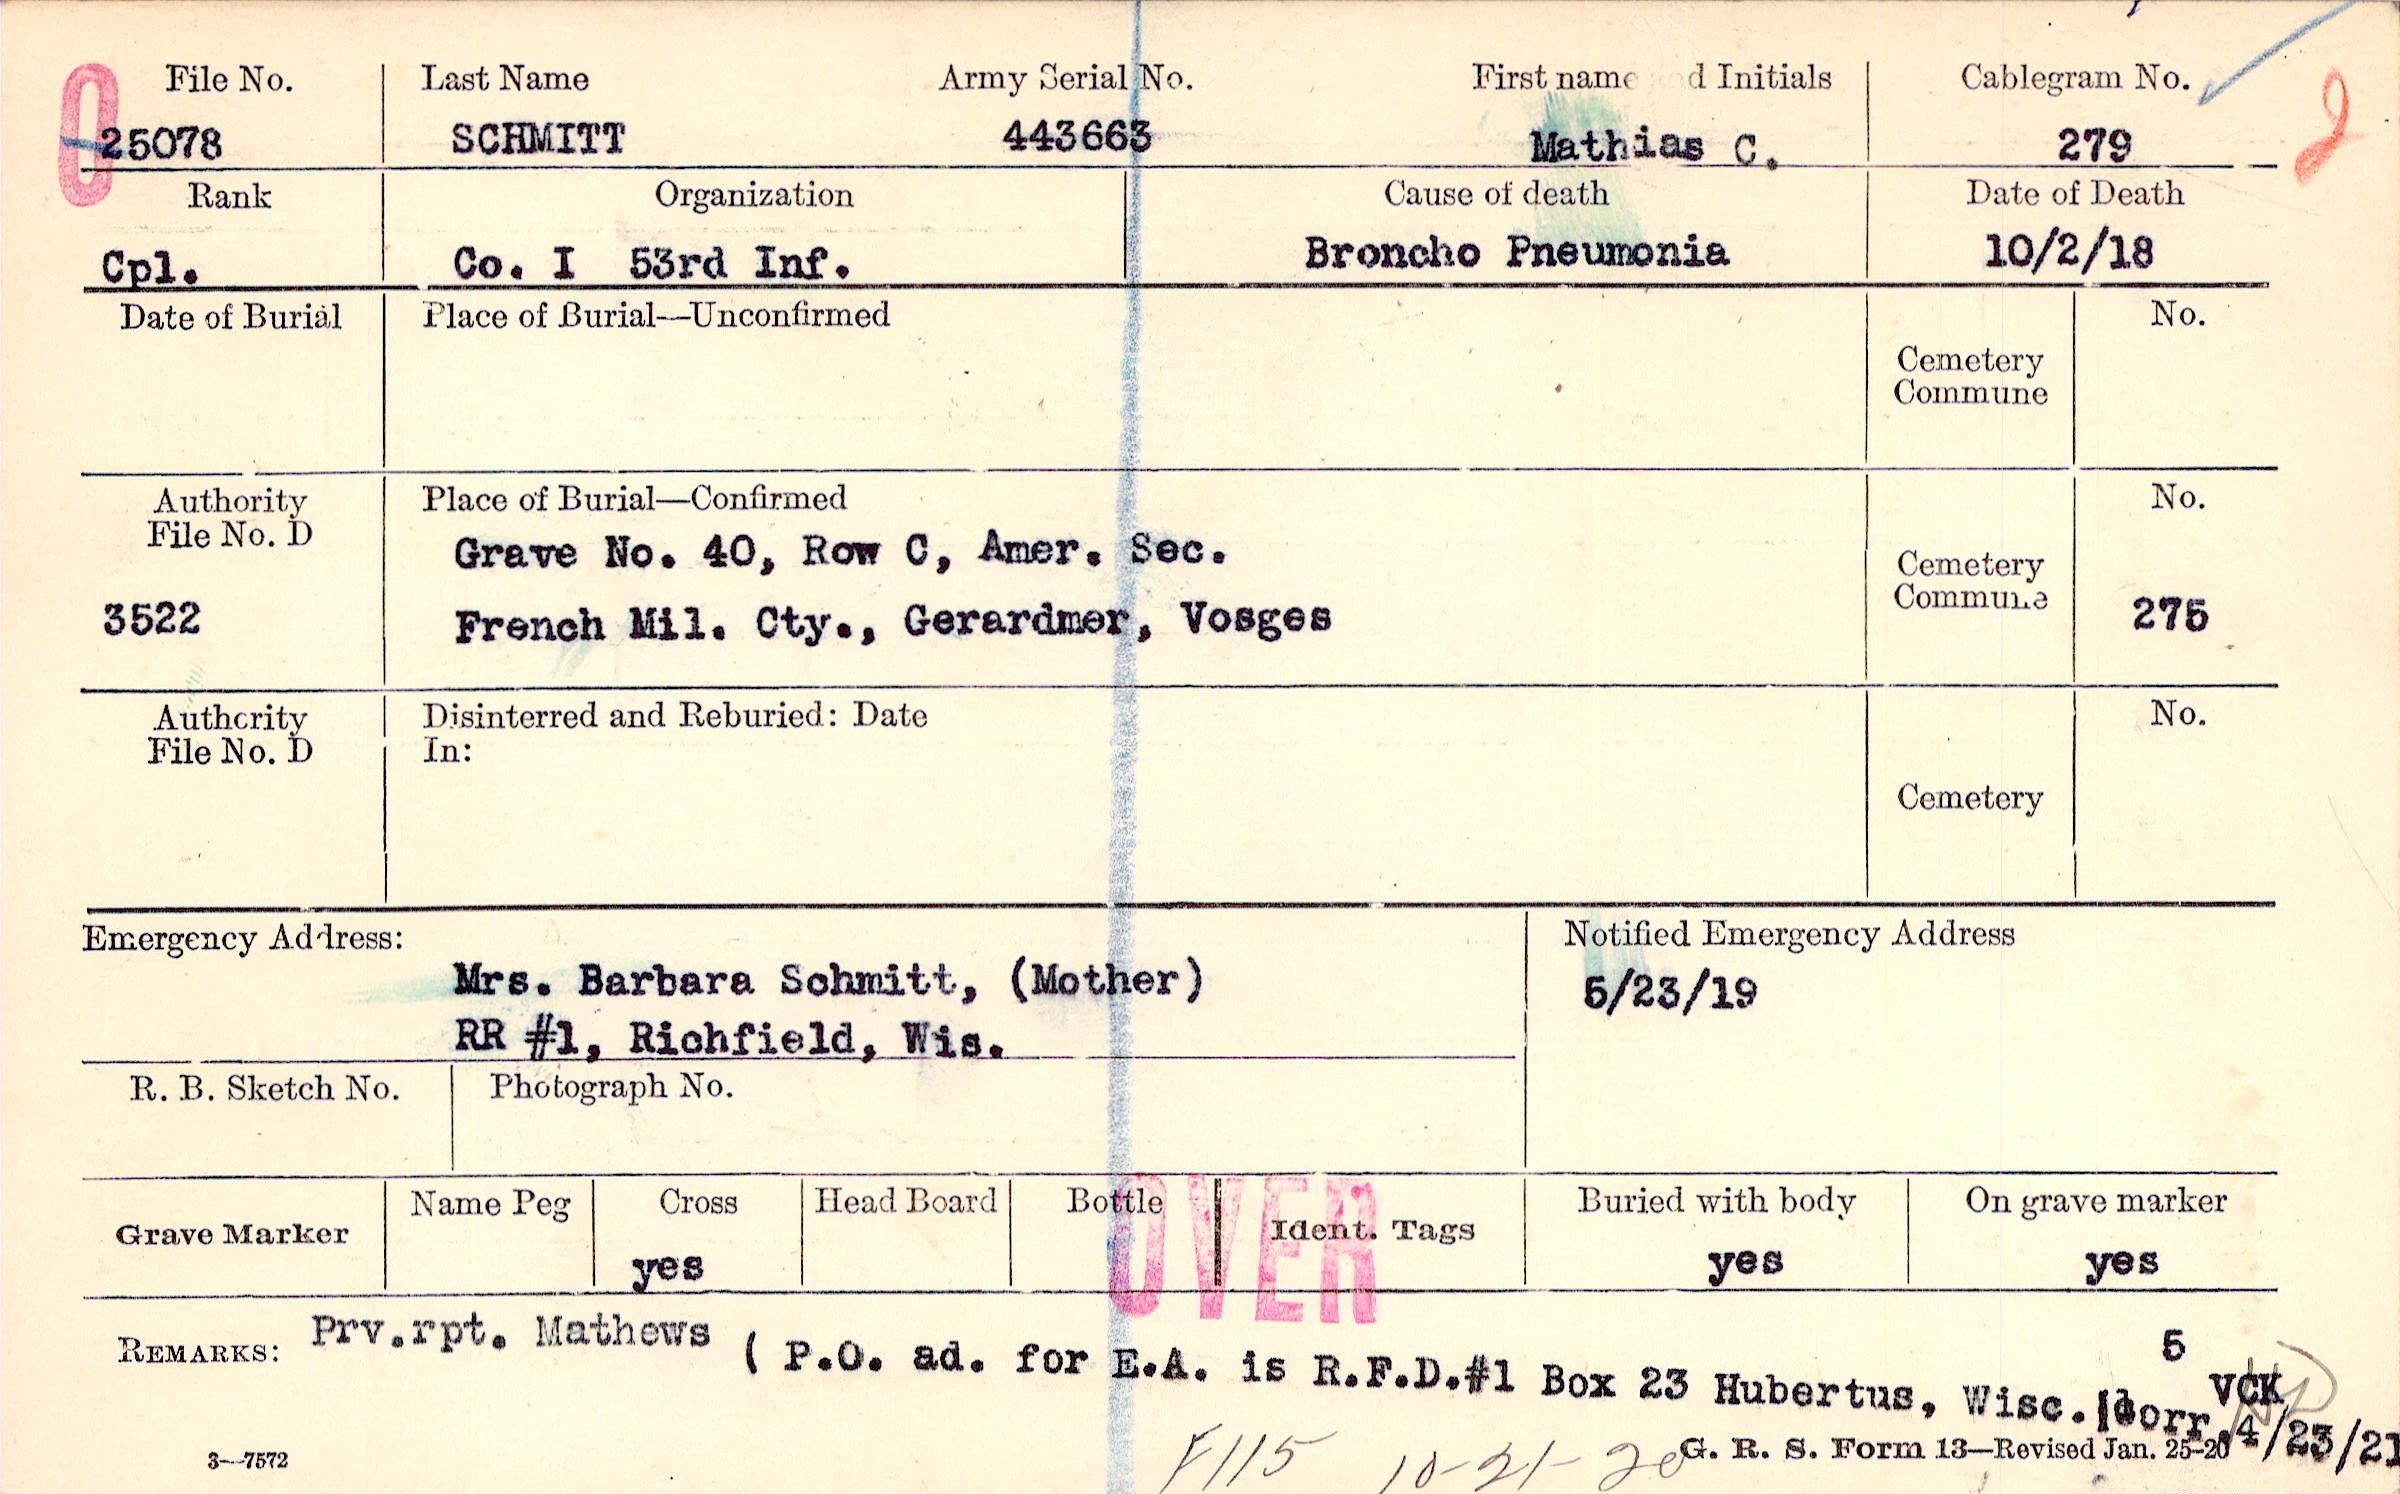 File No. Last Name Army Serial No. First name d Initials Cablegram No.
25078 SCHMITT 443663 Mathias C. 279
Rank Organization Cause of death Date of Death
Cpl. Co. I 53rd Inf. Broncho Pneumonia 10/2/18
Date of Burial Place of Burial—Unconfirmed No.
Cemetery
Commune
Authority Place of Burial—Confirmed No.
File No. D
Grave No. 40, Row C, Amer. Sec.
Cemetery
Commune
3522 French Mil. Cty., Gerardmer, Vosges 275
Authority Disinterred and Reburied: Date No.
File No. D In:
Cemetery
Emergency Address: Notified Emergency Address
Mrs. Barbara Schmitt, (Mother) 5/23/19
RR #1, Richfield, Wis.
R. B. Sketch No. Photograph No.
Grave Marker Name Peg Cross Head Board Bottle Ident. Tags Buried with body On grave marker
yes yes yes
OVER
REMARKS: Prv.rpt. Mathews ( P.O. ad. for E.A. is R.F.D.#1 Box 23 Hubertus, Wisc.
5
VCK
4/23/21
F115 10-21-20
3—7572 G. R. S. Form 13—Revised Jan. 25-20